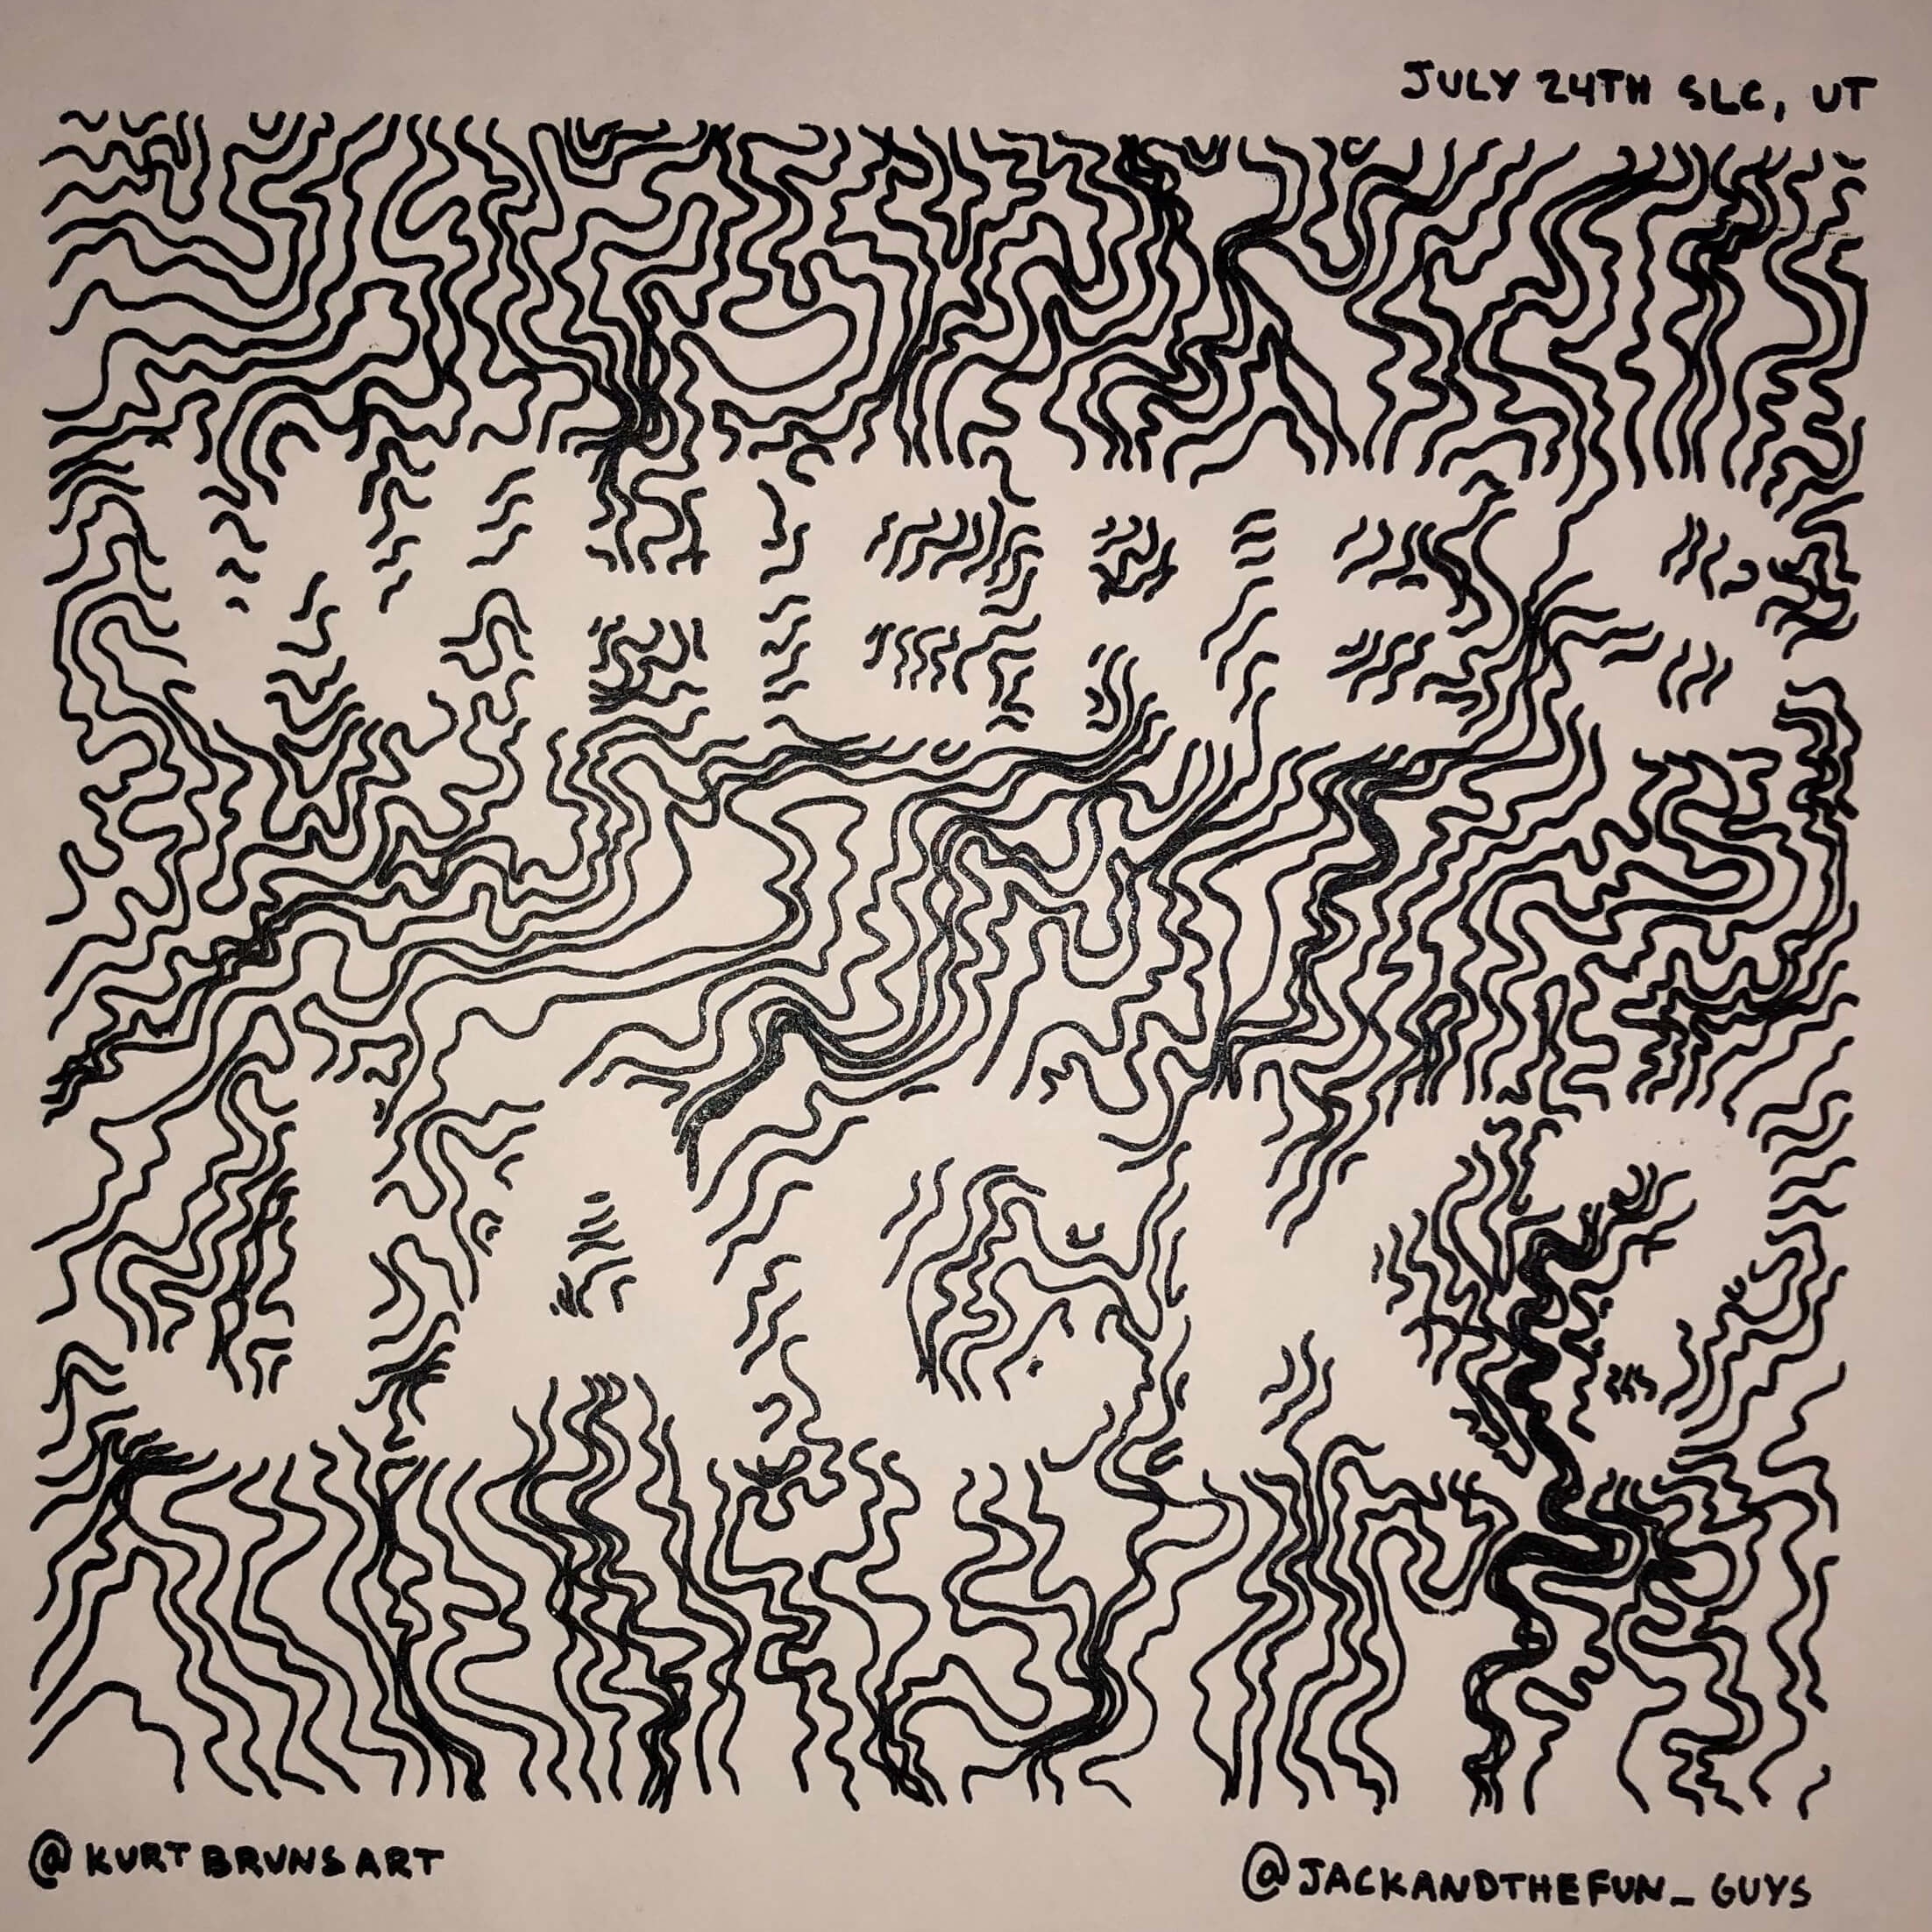 JULY 24TH SLC, UT
WHERES
JACK?
@KURTBRUNSART
@JACKANDTHEFUN_GUYS